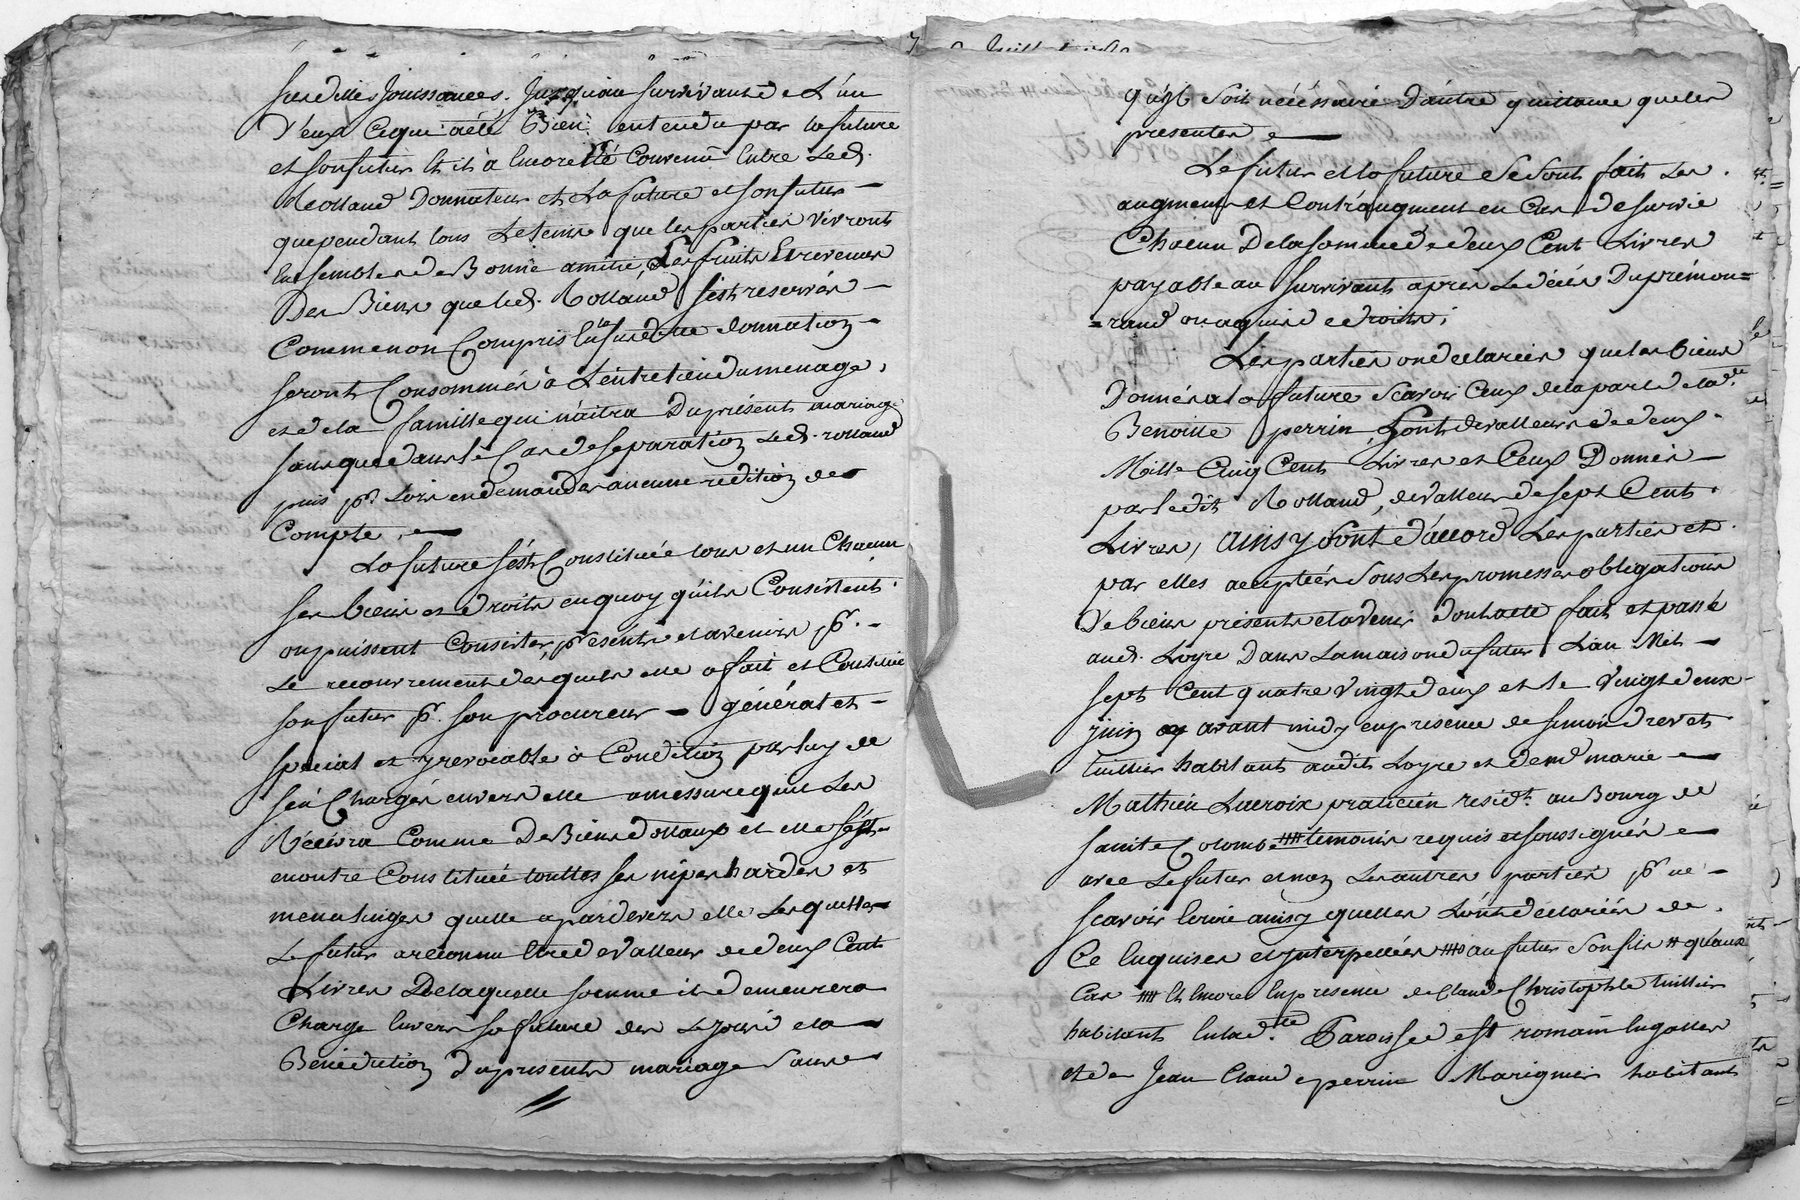 susdittes Jouissances. Jusquau survivant d et L'un
D'eux Ceque aété Bien entendu par la future
et son futur Et il à Encore été Convenu Entre Led.
Rolland Donnateur et La future et son futur —
que pendant tous Le tems que les parties vivront
Ensemble de Bonne amitié, Les fruits Et revenus
Des Biens que led. Rolland s'est reservés —
Comme non Compris En la susditte donnation —
seront Consommés à L'entretien du menage,
et de la famille qui naitra Du présent mariage
sans que dans le Cas de separation Led. rolland
puis pr. Lors en demander aucune redition de
Compte. —
La future s'est Constituée tous et un Chacun
ses biens et droits en quoy qu'ils Consistent
ou puissent Consister, présents et avenirs pr. —
Le recouvrement desquels elle a fait et Constitué
son futur pr. son procureur — général et —
special et yrevocable à Condition par luy de
s'en Charger envers elle a messure quil Les
Récevra Comme De Biens dottaux et elle s'est
en outre Constituée touttes ses nipes hardes et
menalinges quelle a pardevers elle Lesquelles
Le futur a reconnu Etre de valleur de deux Cent
Livres De laquelle somme il demeurera
Charge Envers sa future des Le jour de la
Bénédiction du présent mariage Sans
qu'yl soit nécéssaire D'autre quittance que les
presentes —
Le futur et la future se sont fait Les
augment et Contr'augment en Cas de survie
Chacun De la somme de deux Cent Livres
payable au survivant apres Le décés Du prémou=
=rand
Les parties ont declarées que les biens
Donnés a la future scavoir Ceux de la part de lade.
Benoitte perrin, sont de valleurs de deux
Mille Cinq Cent Livres et Ceux Donnés —
par ledit Rolland, de valleur de sept Cent
Livres, ainsy sont d'accord Les parties et
par elles acceptées sous Les promesses obligations
De biens présents et avenir dont acte fait et passé
aud. Loyre Dans La maison du futur L'an Mil —
sept Cent quatre vingt deux et le vingt deux
juin avant midy en presence de simon drevet
tuillier habitant audit Loyre et de md marie —
Mathieu Lacroix praticien residt. au Bourg de
sainte Colombe temoins requis et soussignés —
avec Le futur et non Les autres parties pr. ne —
scavoir Ecrire ainsy quelles L'ont declarées de
Ce Enquises et ynterpellées au futur son fils qu'aux
Cas Et Encore En presence de Claude Christophle tuillier
habitant En lad.tte Paroisse de st romain En galles
et de Jean Claude perrin Marignier habitant